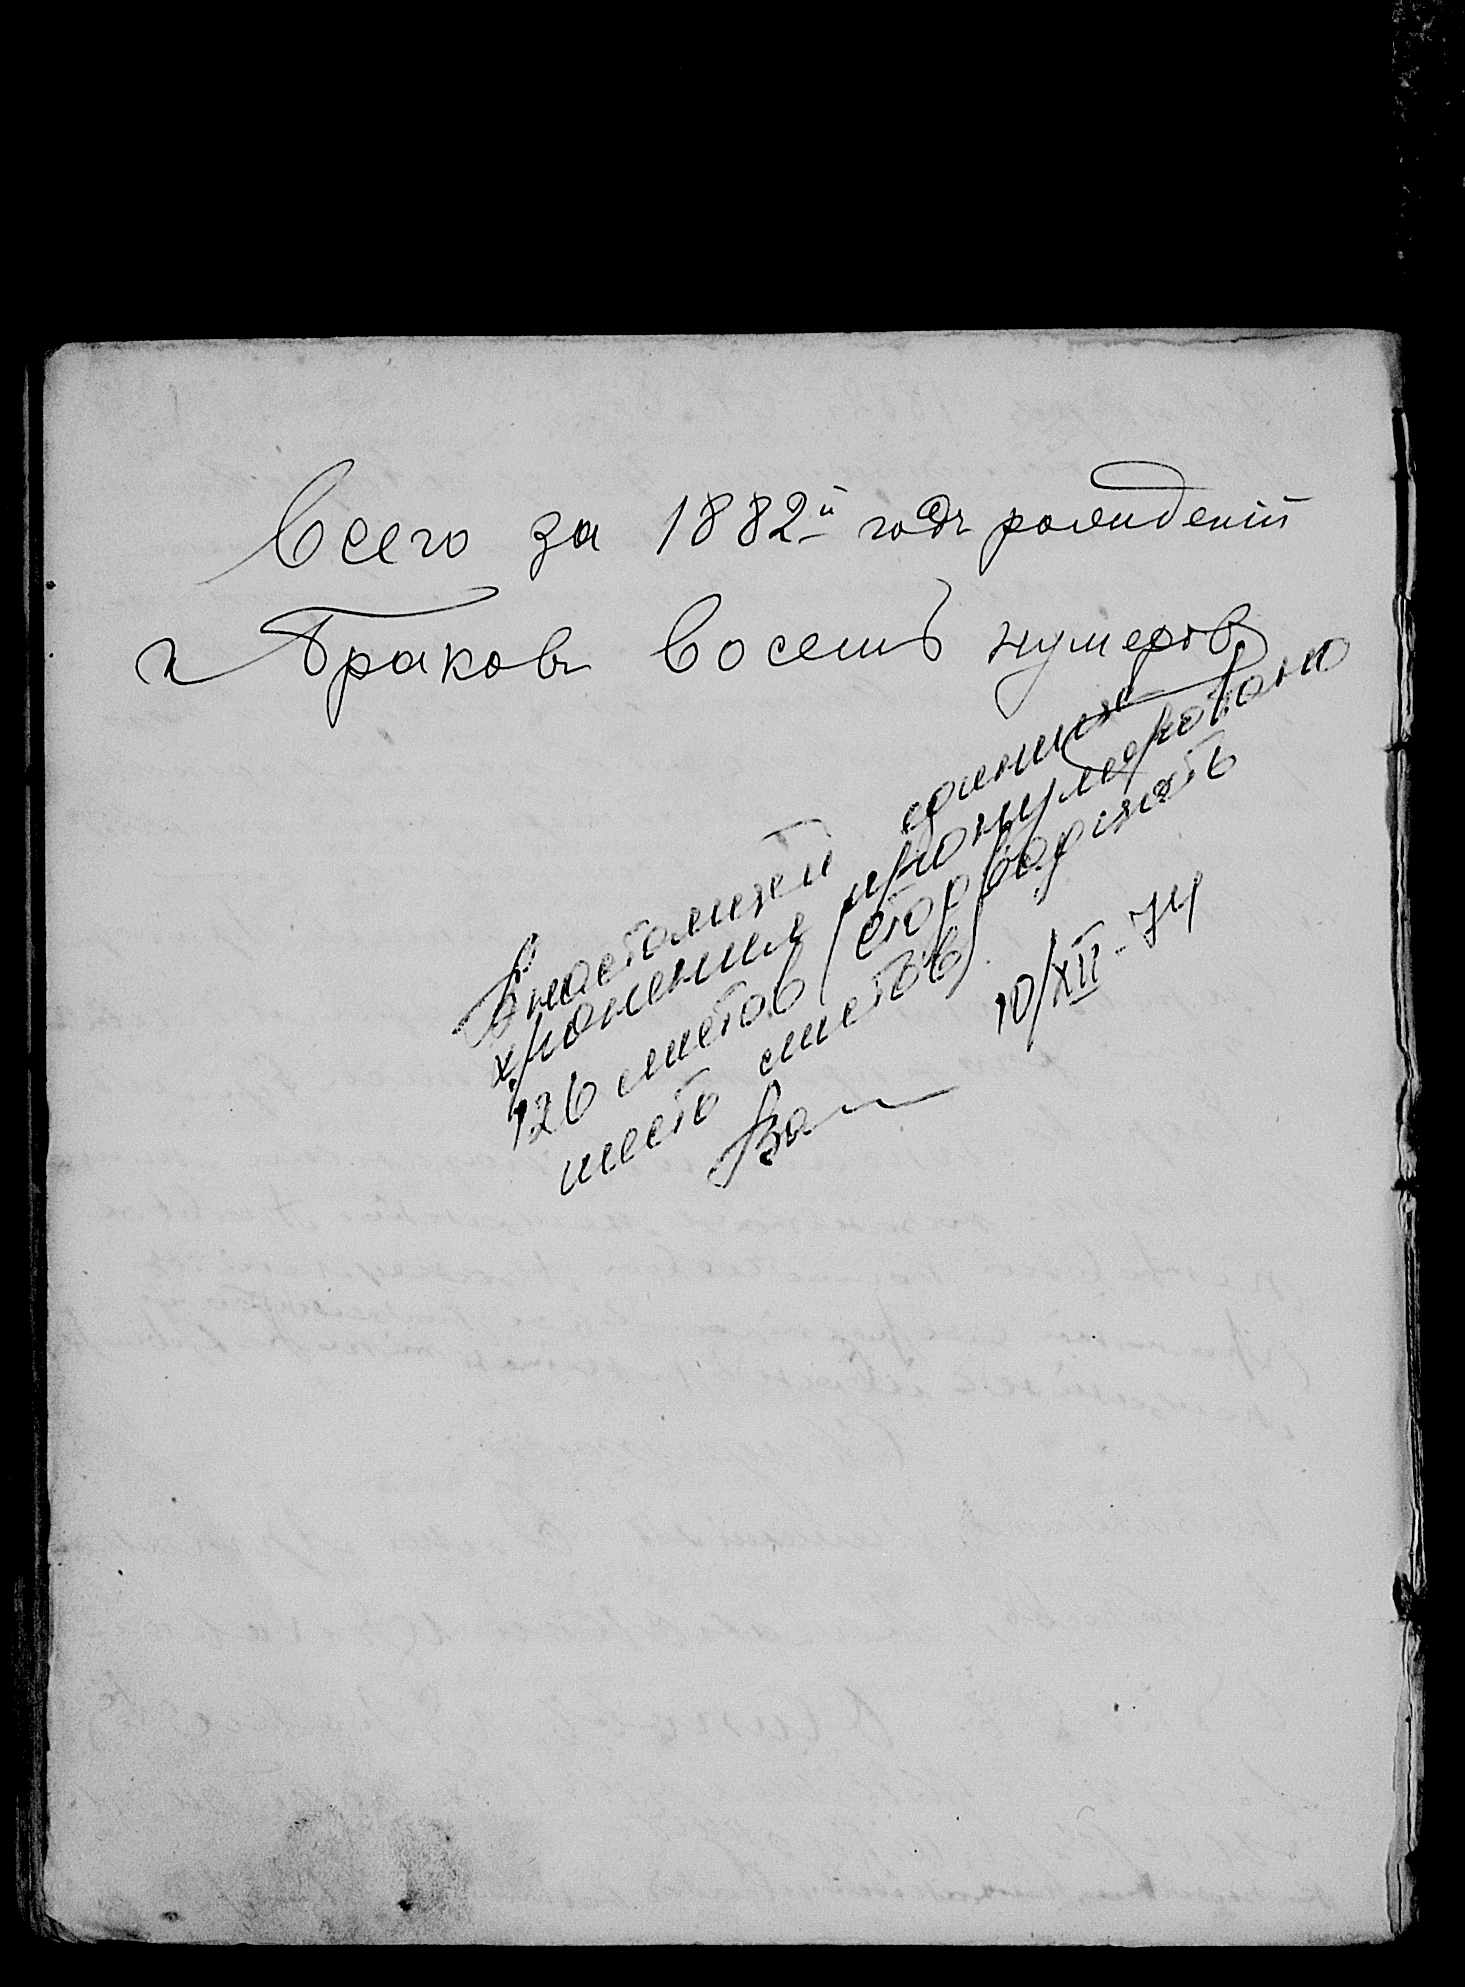 Всего за 1882й годъ рождений
и Браковъ восемь нумеров
В настоящей единице
хранения пронумеровано
126 листов (сто двадцать
шесть листов)
10/XII-74